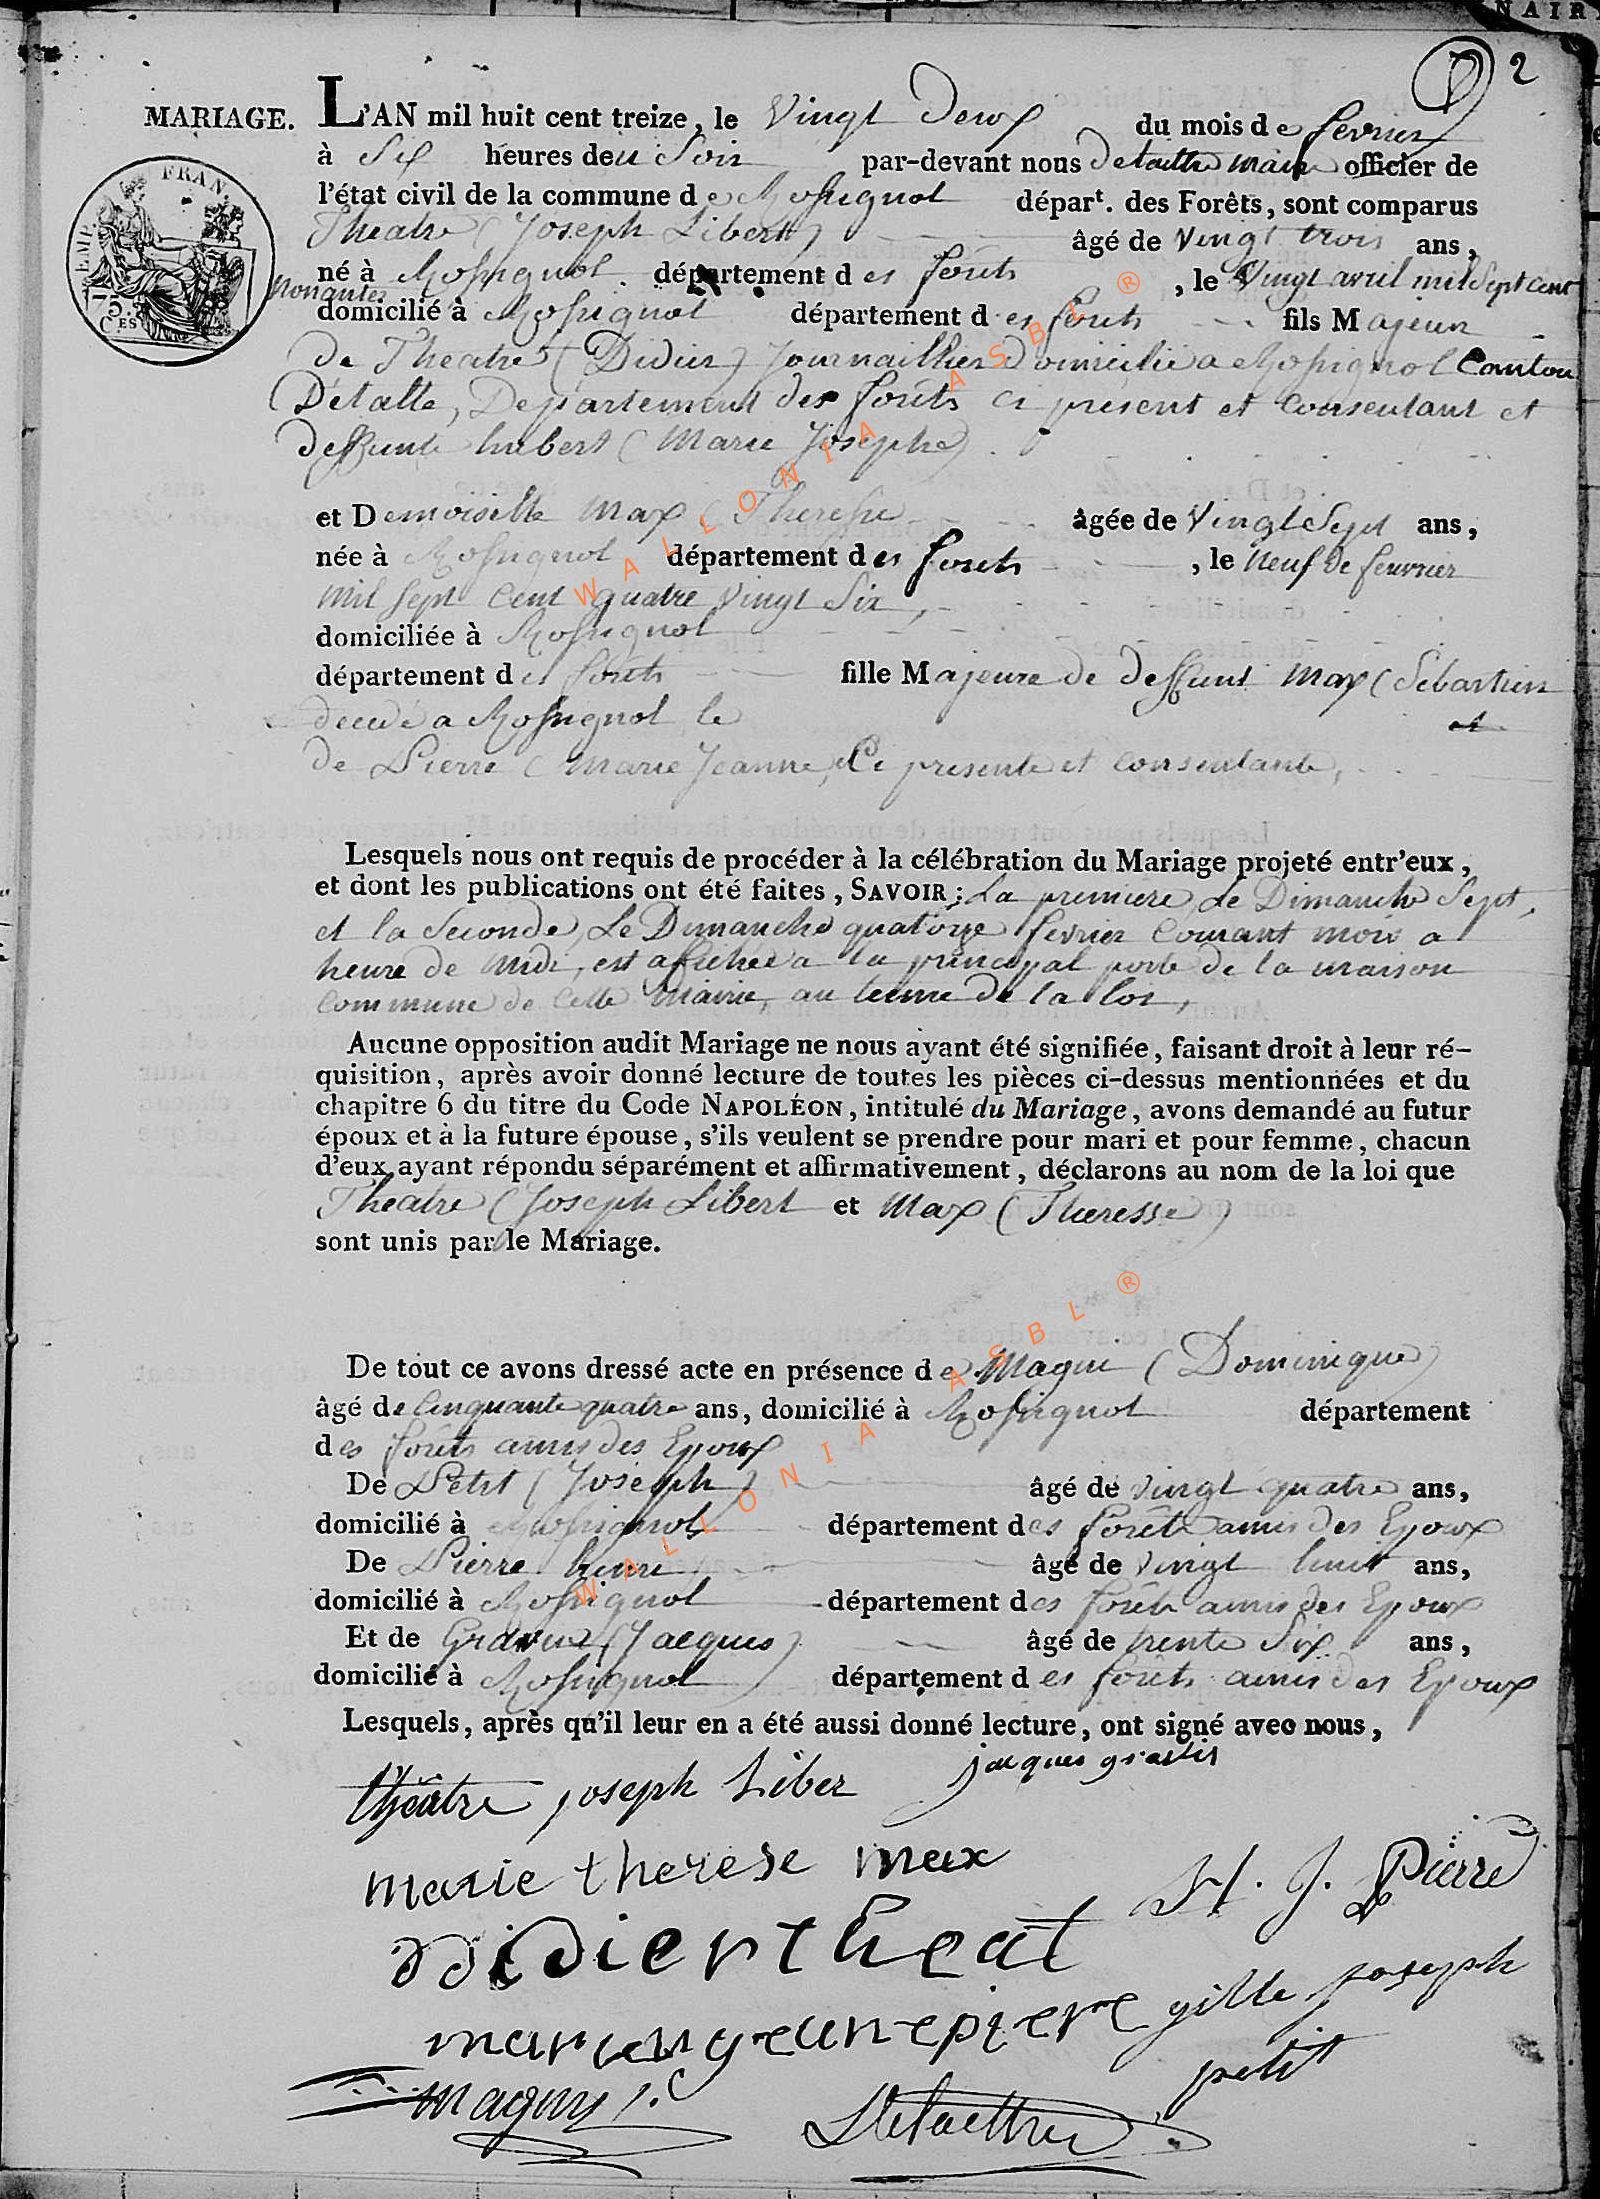 NAIR
2
MARIAGE. L'AN mil huit cent treize, le Vingt Deux du mois de fevrier
EMP. FRAN.
75 CES
à Six heures deu Soir par-devant nous Detaitte maire officier de
l'état civil de la commune de Rossignolépart. des Forêts, sont comparus
Theatre (Joseph Libert) âgé de Vingt trois ans,
né à Rossignol département des forêts, le Vingt avril mil Sept cent
nonante
domicilié à Rossignol département des forêts fils Majeur
de Theatre (Didier) Journaillier Domicilié a Rossignol Canton
D'étalle, Departement des forêts ci présent et Consentant et
deffunte hubert (Marie Josephe)
et Demoiselle Max (Theresse âgée de Vingt Sept ans,
née à Rossignol département des forets, le Neuf de feuvrier
Mil Sept Cent quatre Vingt Six,
domiciliée à Rossignol
département des forêts fille Majeure de deffunt Max (Sebastien
decédé a Rossignol le et
de Pierre (Marie Jeanne, Ci presente et Consentante,
Lesquels nous ont requis de procéder à la célébration du Mariage projeté entr'eux,
et dont les publications ont été faites, SAVOIR: La premiere, Le Dimanche Sept,
et la Seconde, Le Dimanche quatorze fevrier Courant mois a
heure de Midi, est afichée a la principal porte de la maison
Commune de Cette Mairie, au terme de la loi,
Aucune opposition audit Mariage ne nous ayant été signifiée, faisant droit à leur ré-
quisition, après avoir donné lecture de toutes les pièces ci-dessus mentionnées et du
chapitre 6 du titre du Code NAPOLÉON, intitulé du Mariage, avons demandé au futur
époux et à la future épouse, s'ils veulent se prendre pour mari et pour femme, chacun
d'eux ayant répondu séparément et affirmativement, déclarons au nom de la loi que
Theatre (Joseph Libert et Max (Theresse)
sont unis par le Mariage.
De tout ce avons dressé acte en présence de Magni (Dominique)
âgé de Cinquante quatre ans, domicilié à Rossignol département
des forêts amis des Epoux
De Petit (Joseph) âgé de vingt quatre ans,
domicilié à Rossignol département des forêts amis des Epoux
De Pierre henri âgé de Vingt huit ans,
domicilié à Rossignol département des forêts amis des Epoux
Et de (Jacques) âgé de trente Six ans,
domicilié à Rossignol département des forêts amis des Epoux
Lesquels, après qu'il leur en a été aussi donné lecture, ont signé avec nous,
théâtre joseph Liber jacques
marie therese max H. J. Pierre
Didier theat
gille joseph
petit
WALLONIA ASBL ®
WALLONIA ASBL ®